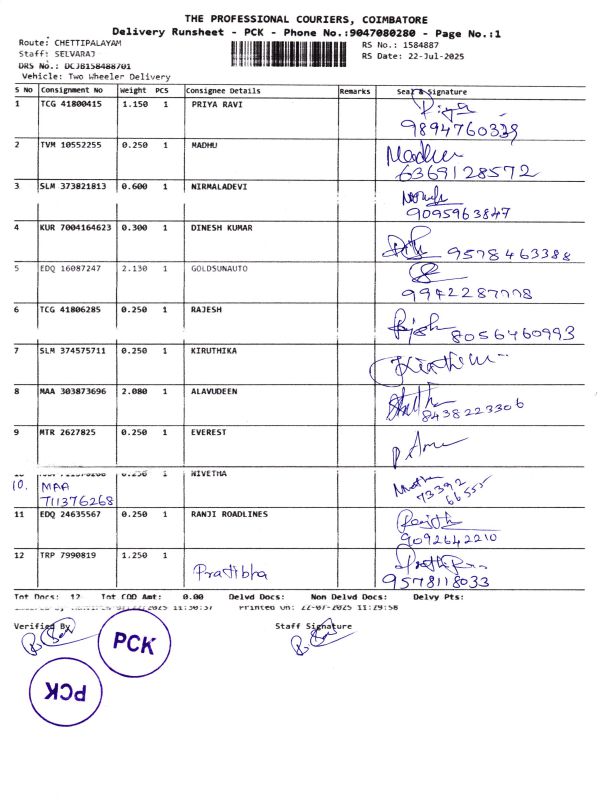 THE PROFESSIONAL COURIERS, COIMBATORE
Delivery Runsheet - PCK - Phone No.:9047080280 - Page No.:1
Route: CHETTIPALAYAM RS No.: 1584887
Staff: SELVARAJ RS Date: 22-Jul-2025
DRS No.: DCJB158488701
Vehicle: Two Wheeler Delivery
S No Consignment No Weight PCS Consignee Details Remarks Seal & Signature
1 TCG 41800415 1.150 1 PRIYA RAVI Priya
9894760339
2 TVM 10552255 0.250 1 MADHU Madhu
6369128572
3 SLM 373821813 0.600 1 NIRMALADEVI
9095963847
4 KUR 7004164623 0.300 1 DINESH KUMAR 9578463388
5 EDQ 16087247 2.130 1 GOLDSUNAUTO
9942287778
6 TCG 41806285 0.250 1 RAJESH Rajesh 8056460993
7 SLM 374575711 0.250 1 KIRUTHIKA
8 MAA 303873696 2.080 1 ALAVUDEEN
8438223306
9 MTR 2627825 0.250 1 EVEREST
10 0.250 1 NIVETHA
10. MAA 73392
711376268 66555
11 EDQ 24635567 0.250 1 RANJI ROADLINES Ranjith
9092642210
12 TRP 7990819 1.250 1 Prathibha
9578118033
Tot Docs: 12 Tot COD Amt: 0.00 Delvd Docs: Non Delvd Docs: Delvy Pts:
11:30:37 Printed On: 22-07-2025 11:29:58
Verified By Staff Signature
PCK
PCK